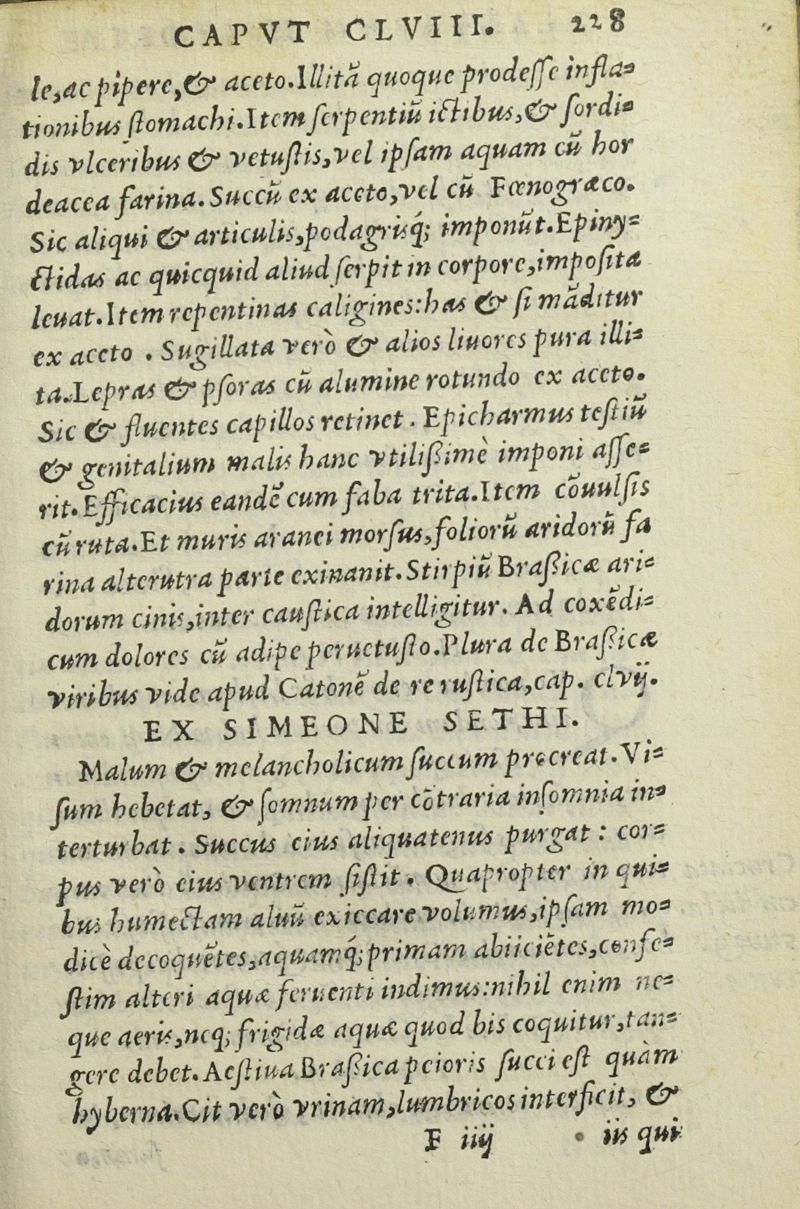 CAPVT CLVIII. 228
le, ac pipere, & aceto. Illitā quoque prodeſſe infla-
tionibus ſtomachi. Item ſerpentiū ictibus, & ſordi-
dis vlceribus & vetuſtis, vel ipſam aquam cū hor
deacea farina. Succū ex aceto, vel cū Fœnogræco.
Sic aliqui & articulis, podagrisq́; imponūt. Epiny-
ctidas ac quicquid aliud ſerpit in corpore, impoſita
leuat. Item repentinas caligines: has & ſi māditur
ex aceto . Sugillata verò & alios liuores pura illi-
ta. Lepras & pſoras cū alumine rotundo ex aceto.
Sic & fluentes capillos retinet . Epicharmus teſtiū
& genitalium malis hanc vtiliſsimè imponi aſſe-
rit. Efficacius eandē cum faba trita. Item cōuulſis
cū ruta. Et muris aranei morſus, foliorū aridorū fa
rina alterutra parte exinanit. Stirpiū Braſsicæ ari-
dorum cinis, inter cauſtica intelligitur. Ad coxēdi-
cum dolores cū adipe peruetuſto. Plura de Braſsicæ
viribus vide apud Catonē de re ruſtica, cap. clvij.
EX SIMEONE SETHI.
Malum & melancholicum ſuccum procreat. Vi-
ſum hebetat, & ſomnum per cōtraria inſomnia in-
terturbat . Succus eius aliquatenus purgat : cor-
pus verò eius ventrem ſiſtit . Quapropter in qui-
bus humectam aluū exiccare volumus, ipſam mo-
dicè decoquētes, aquamq́; primam abiiciētes, confe-
ſtim alteri aquæ feruenti indimus: nihil enim ne-
que aeris, neq; frigidæ aquæ quod bis coquitur, tan-
gere debet. Aeſtiua Braſsica peioris ſucci eſt quàm
hyberna. Cit verò vrinam, lumbricos interficit, &
F iiij iis qui